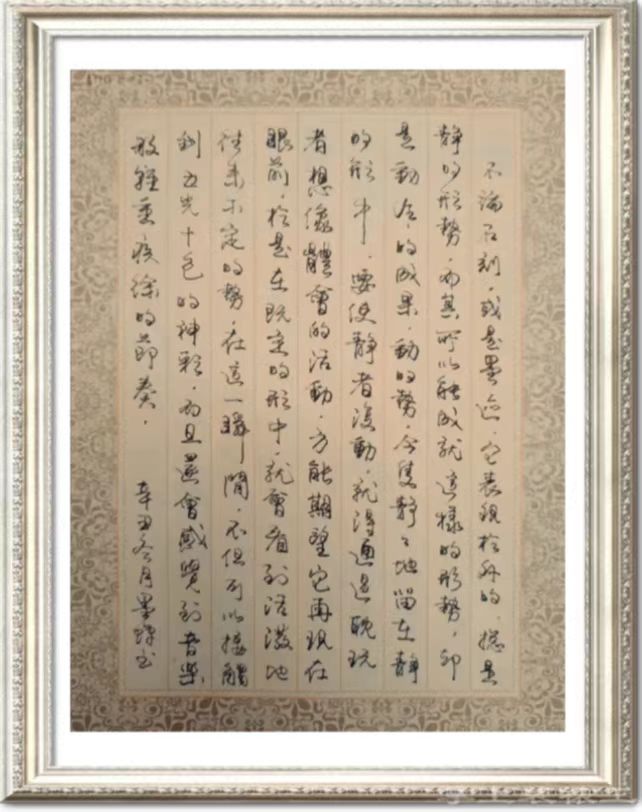 不論石刻，或是墨迹，它表現於外的，總是
靜的形勢，而其所以能成就這樣的形勢，卻
是動作的成果，動的勢，今隻靜靜地留在靜
的形中，要使靜者復動，就得通過耽玩
者想像體會的活動，方能期望它再現在
眼前，於是在既定的形中，就會看到活潑地
往來不定的勢，在這一瞬間，不但可以接觸
到五光十色的神彩，而且還會感覺到音樂
般輕重疾徐的節奏，
辛丑冬月墨